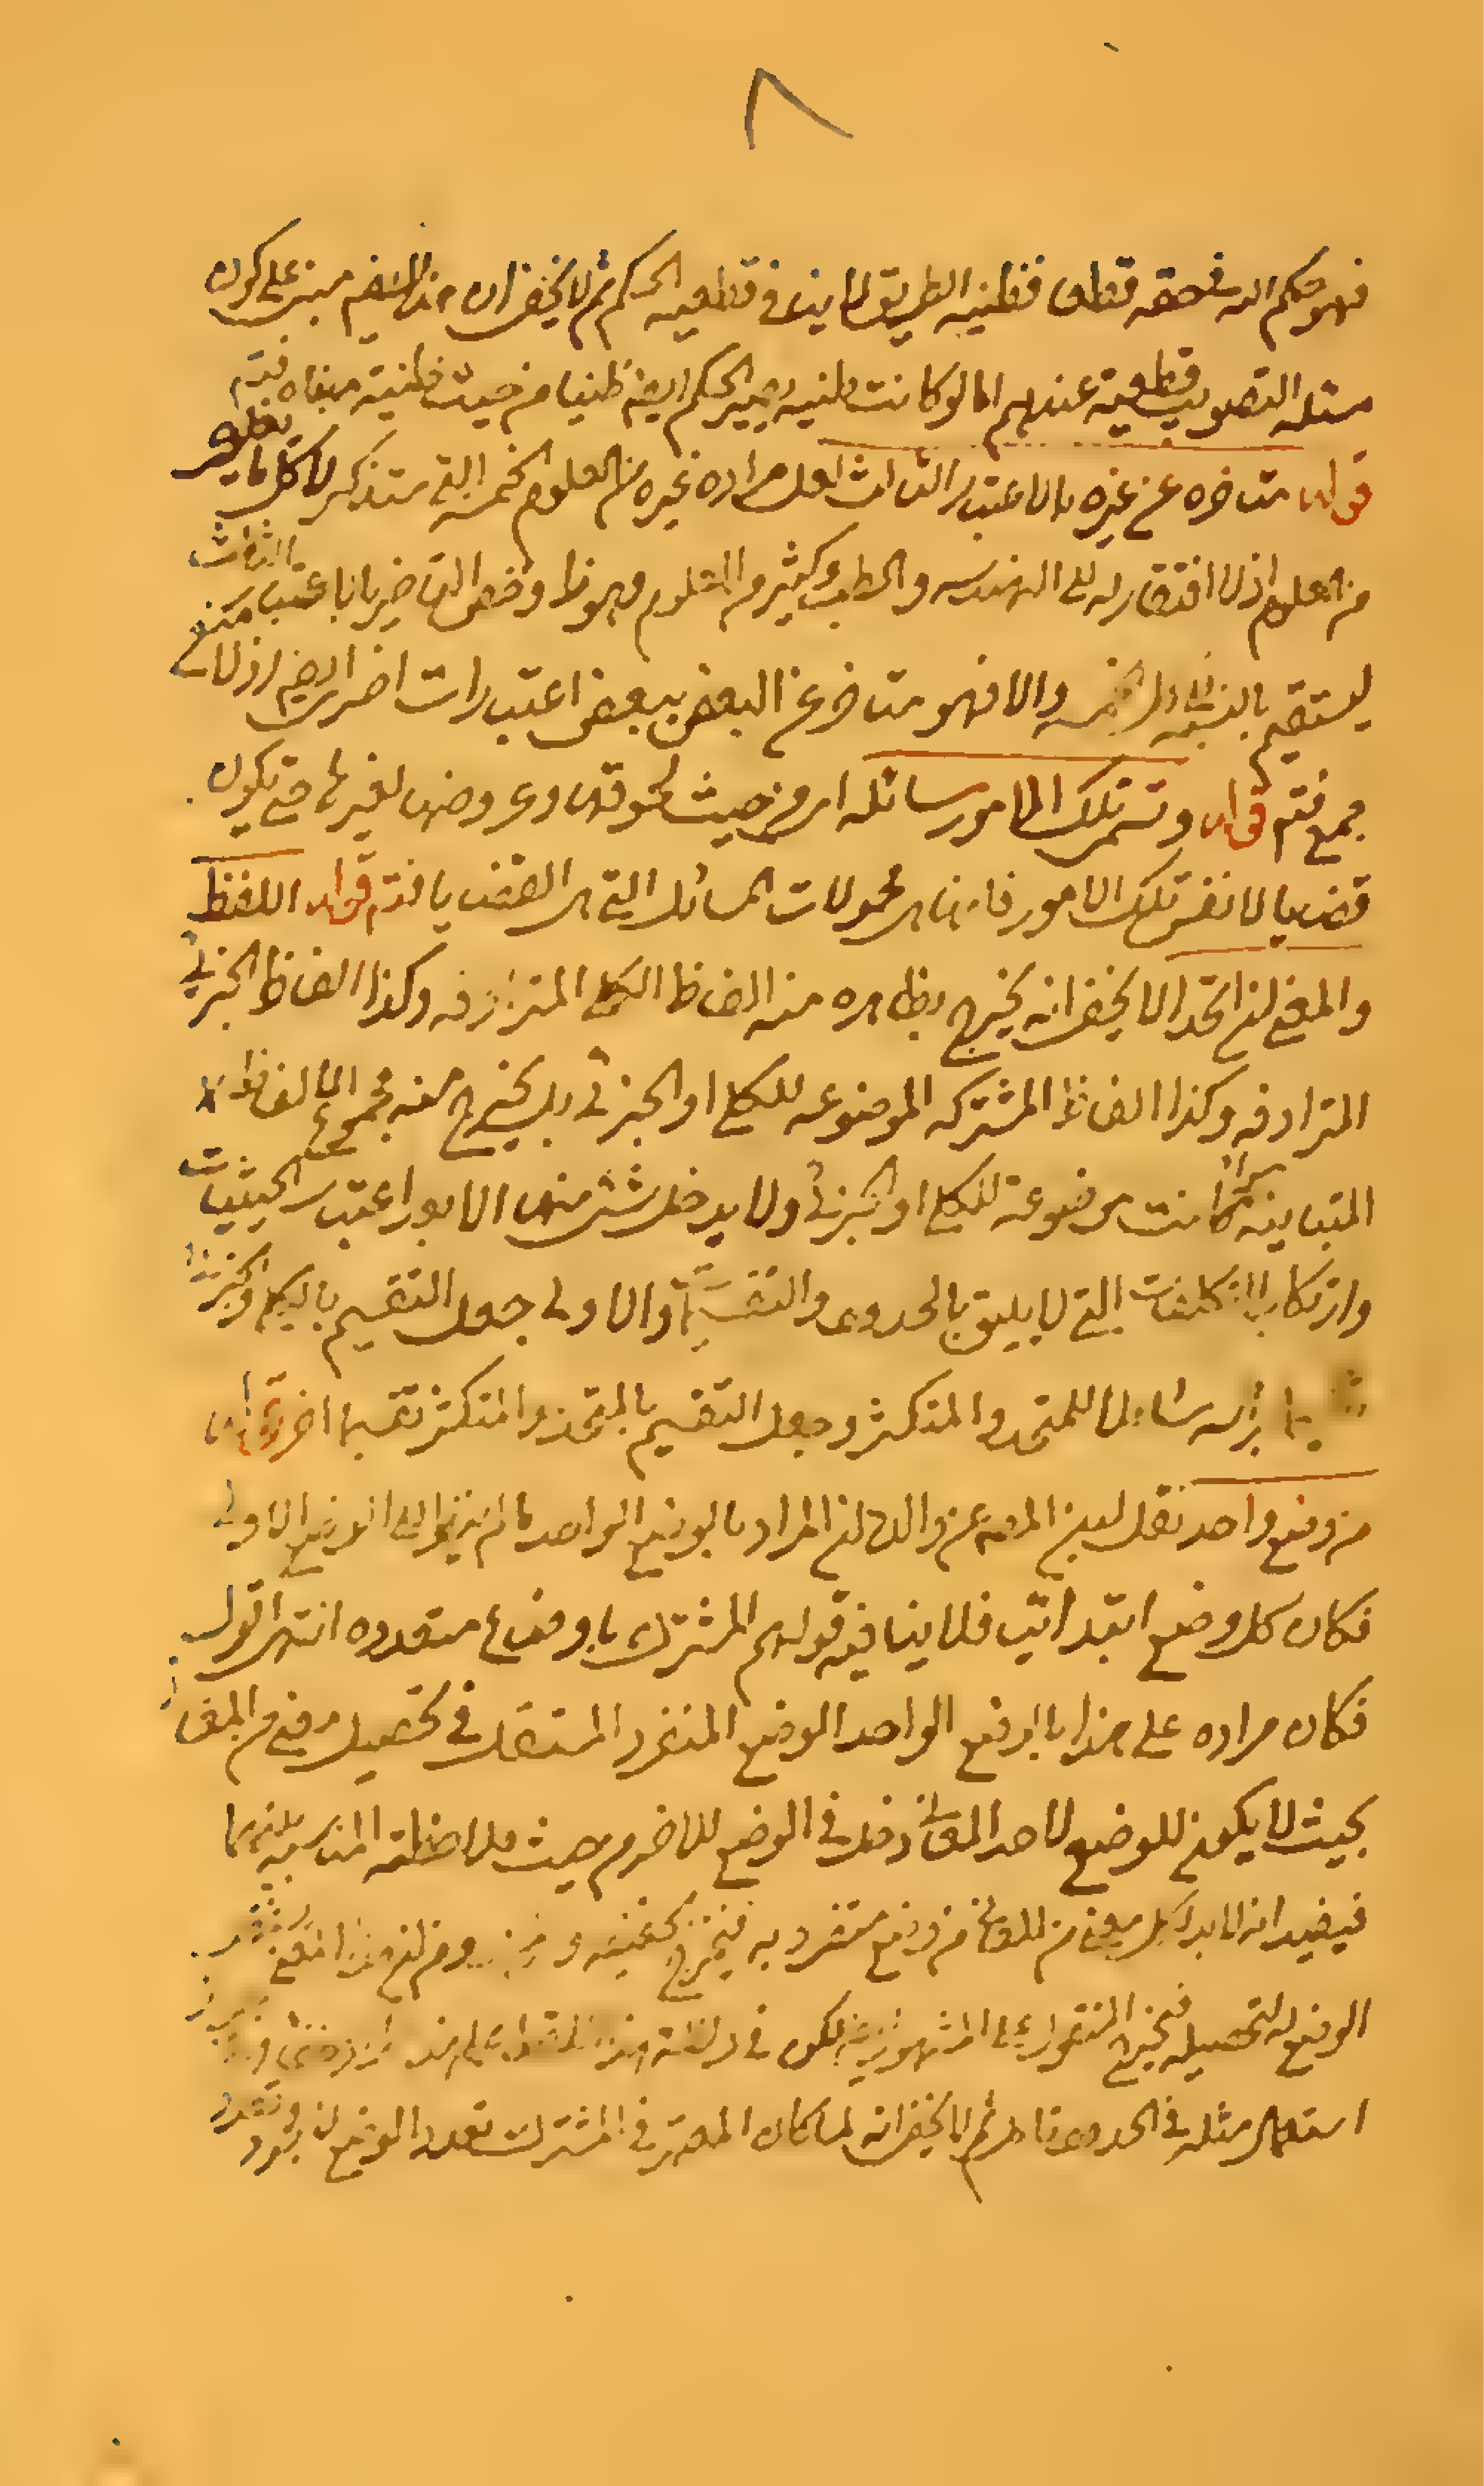 ٨
فهو حكم الله فى حقه قطعا فظنيه الطريق لا ينافى قطعيه الحكم ثم لا يخفى ان هذا انما يتم مبنى على كون
مسئله التصويب قطعية عندهم اما لو كانت ظنيه يصير الحكم ايضا ظنيا من حيث ظنية مبناه فتم
قوله متاخره عن غيره بالاعتبار الثالث لعل مراده غيره من العلوم الخمسه التى ستذكر لا كل ما يطلق
من العلوم اذ لا افتقار له الى الهندسه والطب وكثير من العلوم وهو ظ وخص التاخير بالاعتبار الثالث
ليستقيم بالنسبه الى الخمسه والا فهو متاخر عن البعض ببعض اعتبارات اخر ايضا اذ لا منع
جمع فتم قوله وتسمى تلك الامور مسائله اى من حيث لحوقها وعروضها لغيرها حتى يكون
قضايا لا نفس تلك الامور فانها هى محمولات المسائل التى هى القضايا فتم قوله اللفظ
والمعنى ان اتحدا لا يخفى انه يخرج بظاهره منه الفاظ الكلى المترادفه وكذا الفاظ الجزئى
المترادفه وكذا الفاظ المشتركه الموضوعه للكلى او الجزئى بل يخرج منه مجموع الالفاظ
المتباينه سواء كانت موضوعة للكلى او الجزئى ولا يدخل شئ منها الا بعد اعتبار الحيثيات
وارتكاب التكلفات التى لا يليق بالحدود والتقسيم والاولى جعل التقسيم بالكلى والجزئى
براسه شاملا للمتحد والمتكثر وجعل التقسيم بالمتحد والمتكثر تقسيما اخر قوله
من وضع واحد نقل ابن المصه عن والده ان المراد بالوضع الواحد ما لم ينظر الى الوضع الاول
فكان كل وضع ابتدائى فلا ينافيه قولهم المشترك باوضاع متعدده انتهى اقول
فكان مراده على هذا بالوضع الواحد الوضع المنفرد المستقل فى تحصيل معنى من المعانى
بحيث لا يكون للوضع لاحد المعانى دخل فى الوضع للاخر من حيث ملاحظة المناسبه بينهما
فيفيد انه لا بد لكل معنى من المعانى من وضع متفرد به فيخرج الحقيقه و
الوضع لتحصيله فيخرج المنقول على المشهور لكن فى دلالة هذا اللفظ على هذا
استعمال مثله فى الحدود تامل ثم لا يخفى انه لما كان المعتبر فى المشترك تعدد الوضع